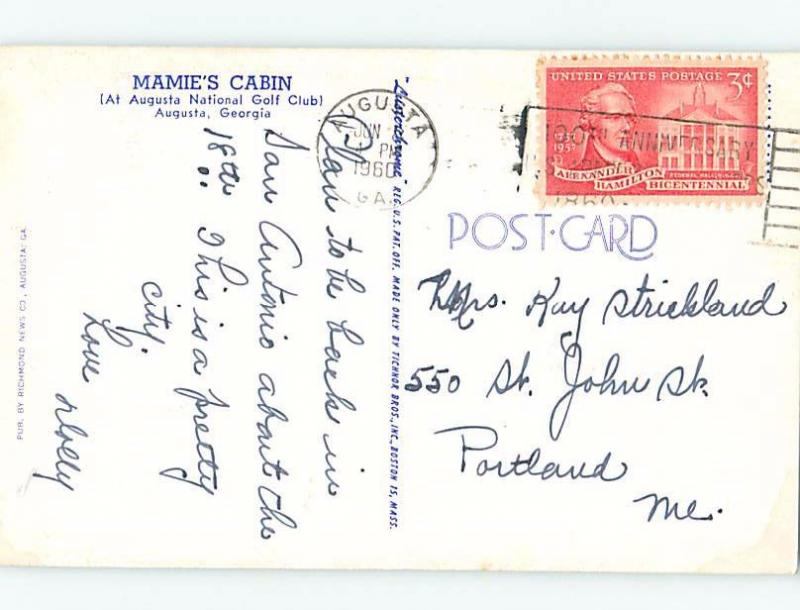 MAMIE'S CABIN
(At Augusta National Golf Club)
Augusta, Georgia
Plan to be back in
San Antonio about the
18th.. This is a pretty
city.
Love
PUB. BY RICHMOND NEWS CO., AUGUSTA, GA.
"Lusterchrome" REG. U.S. PAT. OFF. MADE ONLY BY TICHNOR BROS., INC., BOSTON 15, MASS.
AUGUSTA
JUN
PM
1960
GA.
UNITED STATES POSTAGE 3¢
1957
ALEXANDER
HAMILTON BICENTENNIAL
FEDERAL HALL, N.Y.
100TH ANNIVERSARY
1860
POST-CARD
Mrs. Kay Strickland
550 St. John St.
Portland
Me.